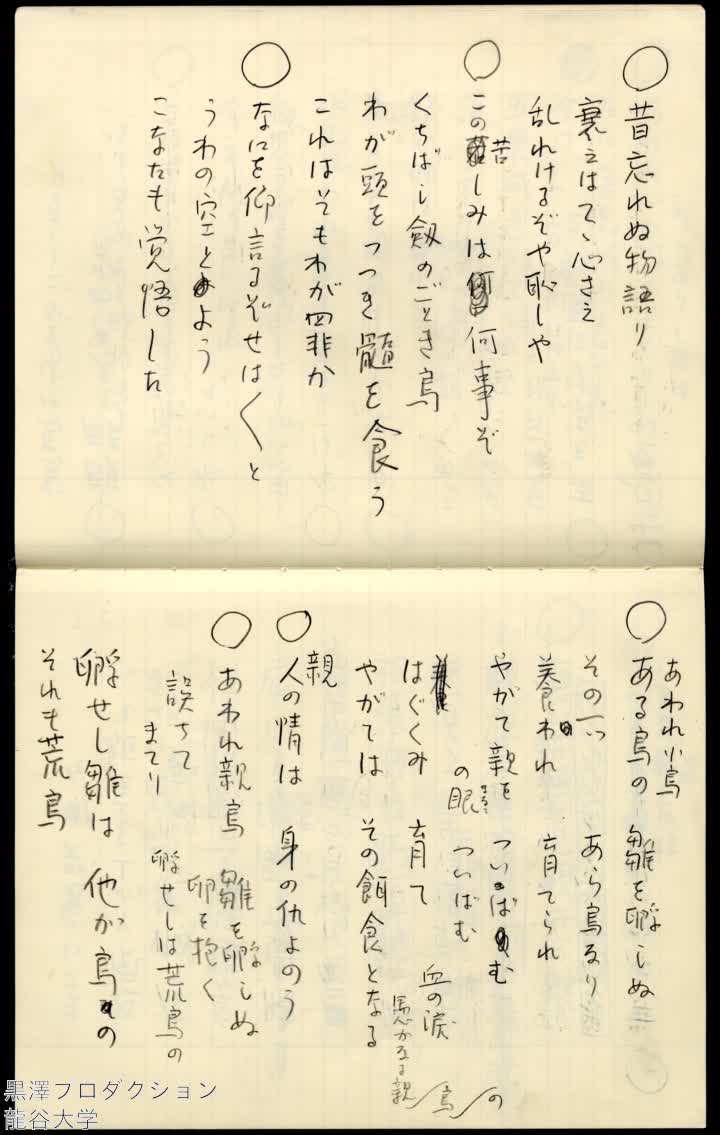 ○昔忘れぬ物語り
衰えはてゝ心さえ
乱れけるぞや恥しや
○この苦しみは何事ぞ
くちばし剱のごとき鳥
わが頭をつつき髄を食う
これはそもわが罪か
○なにを仰言るぞせはしくと
うわの空とよう
こなたも覚悟した
あわれ小鳥
○ある鳥の 雛を孵しぬ
その一つ あら鳥なり
養われ 育てられ
やがて親を ついばむ
の眼 ついばむ
はぐくみ 育て
血の涙
愚かなる親鳥の
やがては その餌食となる
親
○人の情は 身の仇よのう
○あわれ親鳥 雛を孵しぬ
卵を抱く
誤ちて 孵せしは荒鳥の
まてり
孵せし雛は 他が鳥の
それも荒鳥
黒澤プロダクション
龍谷大学